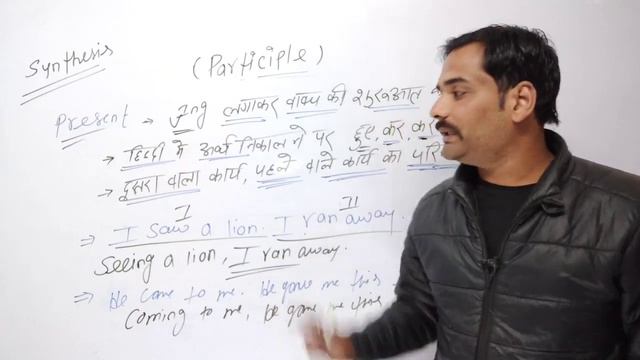 Synthesis
(Participle)
Present → Ing लगाकर वाक्य की शुरुआत
→ हिन्दी में अर्थ निकालने पर हुए, कर, कर
→ दूसरा वाला कार्य, पहले वाले कार्य का
I II
⇒ I saw a lion. I ran away.
Seeing a lion, I ran away.
⇒ He came to me. He gave me this
Coming to me, he gave me this